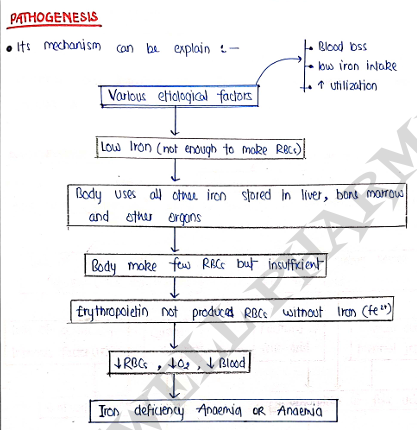 PATHOGENESIS
• Its mechanism can be explain :-
• Blood loss
• low iron intake
• ↑ utilization
Various etiological factors
Low Iron (not enough to make RBCs)
Body uses all other iron stored in liver, bone marrow
and other organs
Body make few RBCs but insufficient
Erythropoietin not produced RBCs without Iron (Fe²⁺)
↓RBCs , ↓O₂ , ↓ Blood
Iron deficiency Anaemia OR Anaemia
WELL PHARM